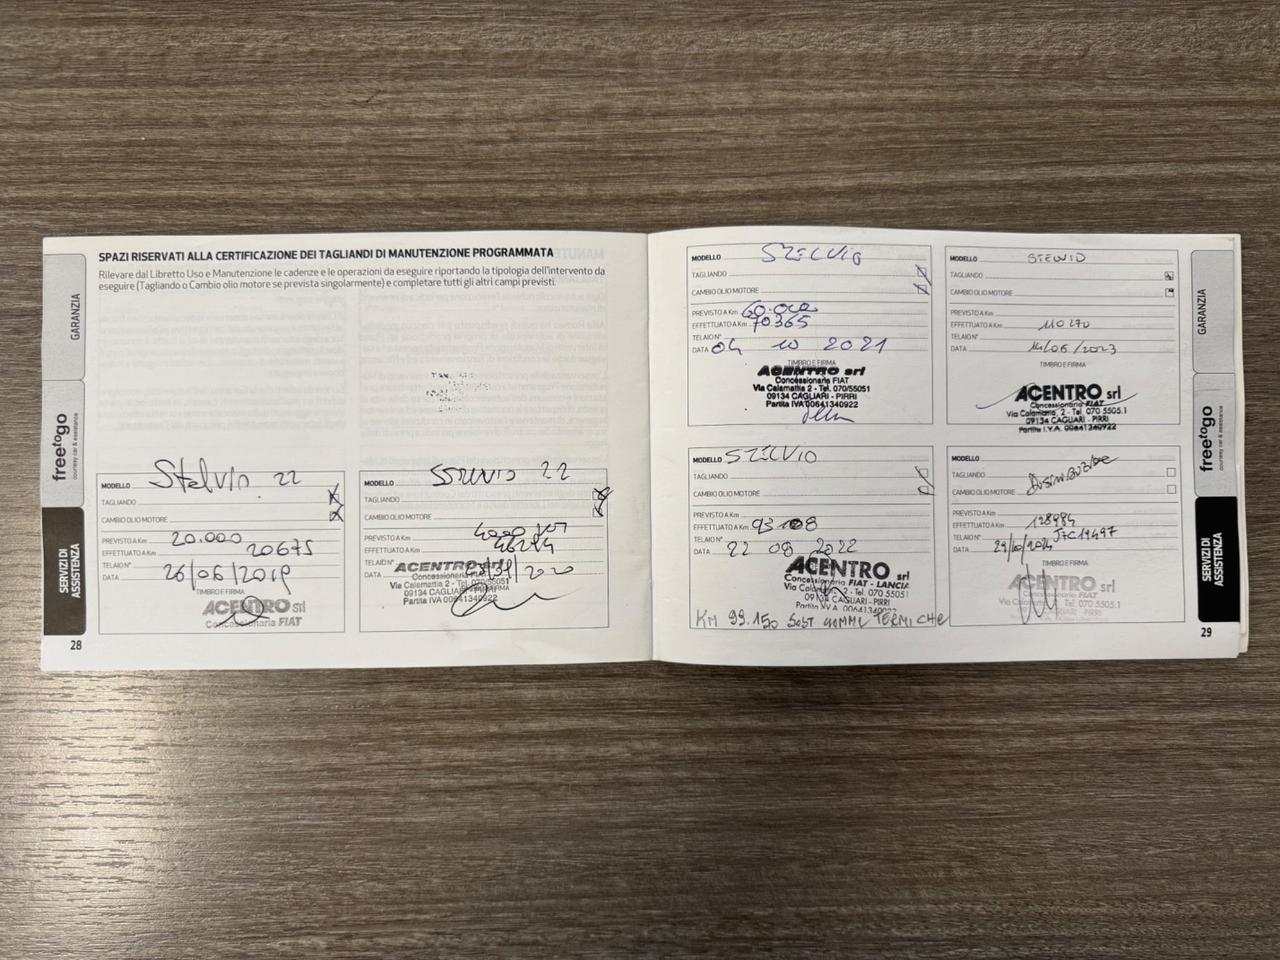 SPAZI RISERVATI ALLA CERTIFICAZIONE DEI TAGLIANDI DI MANUTENZIONE PROGRAMMATA
Rilevare dal Libretto Uso e Manutenzione le cadenze e le operazioni da eseguire riportando la tipologia dell'intervento da
eseguire (Tagliando o Cambio olio motore se prevista singolarmente) e completare tutti gli altri campi previsti.
GARANZIA
freetogo
courtesy car & assistance
SERVIZI DI
ASSISTENZA
MODELLO Stelvio 22
TAGLIANDO
CAMBIO OLIO MOTORE
PREVISTO A Km 20.000
EFFETTUATO A Km 20675
TELAIO N°
DATA 26/06/2019
TIMBRO E FIRMA
ACENTRO srl
Concessionaria FIAT
MODELLO STELVIO 22
TAGLIANDO
CAMBIO OLIO MOTORE
PREVISTO A Km
EFFETTUATO A Km 46294
TELAIO N°
DATA 2020
ACENTRO srl
Concessionaria FIAT
Via Calamattia 2 - Tel. 070/55051
09134 CAGLIARI - PIRRI
Partita IVA 00641340922
28
MODELLO STELVIO
TAGLIANDO
CAMBIO OLIO MOTORE
PREVISTO A Km 60.000
EFFETTUATO A Km 70365
TELAIO N°
DATA 04 10 2021
TIMBRO E FIRMA
ACENTRO srl
Concessionaria FIAT
Via Calamattia 2 - Tel. 070/55051
09134 CAGLIARI - PIRRI
Partita IVA 00641340922
MODELLO STELVIO
TAGLIANDO
CAMBIO OLIO MOTORE
PREVISTO A Km
EFFETTUATO A Km 110270
TELAIO N°
DATA 14/06/2023
TIMBRO E FIRMA
ACENTRO srl
Concessionaria FIAT
Via Calamattia, 2 - Tel. 070 5505.1
09134 CAGLIARI - PIRRI
Partita I.V.A. 00641340922
MODELLO STELVIO
TAGLIANDO
CAMBIO OLIO MOTORE
PREVISTO A Km
EFFETTUATO A Km 93108
TELAIO N°
DATA 22 08 2022
ACENTRO srl
Concessionaria FIAT - LANCIA
Via Calamattia, 2 - Tel. 070 55051
09134 CAGLIARI - PIRRI
Partita I.V.A. 00641340922
KM 99.150 SOST GOMME TERMICHE
MODELLO
TAGLIANDO
CAMBIO OLIO MOTORE
PREVISTO A Km
EFFETTUATO A Km 128984
TELAIO N° J7C19497
DATA 29/10/2024
TIMBRO E FIRMA
ACENTRO srl
Concessionaria FIAT
Tel. 070 5505.1
CAGLIARI - PIRRI
GARANZIA
freetogo
courtesy car & assistance
SERVIZI DI
ASSISTENZA
29